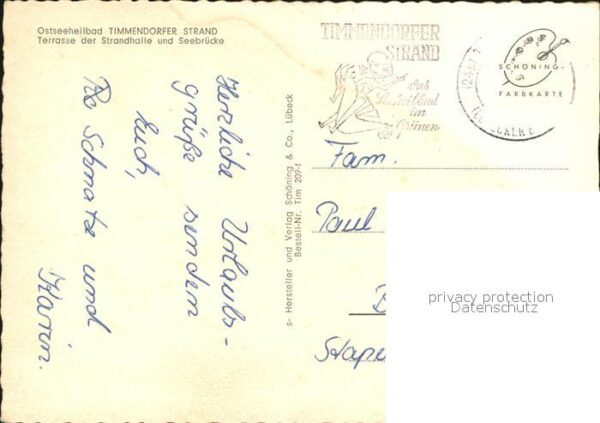 Ostseeheilbad TIMMENDORFER STRAND
Terrasse der Strandhalle und Seebrücke
TIMMENDORFER
STRAND
das
Seeheilbad
im
Grünen
SCHÖNING-
FARBKARTE
Herzliche Urlaubs-
grüße senden
Euch,
und
Karin.
s- Hersteller und Verlag Schöning & Co., Lübeck
Bestell-Nr. Tim 209-f
Fam.
Paul
privacy protection
Datenschutz